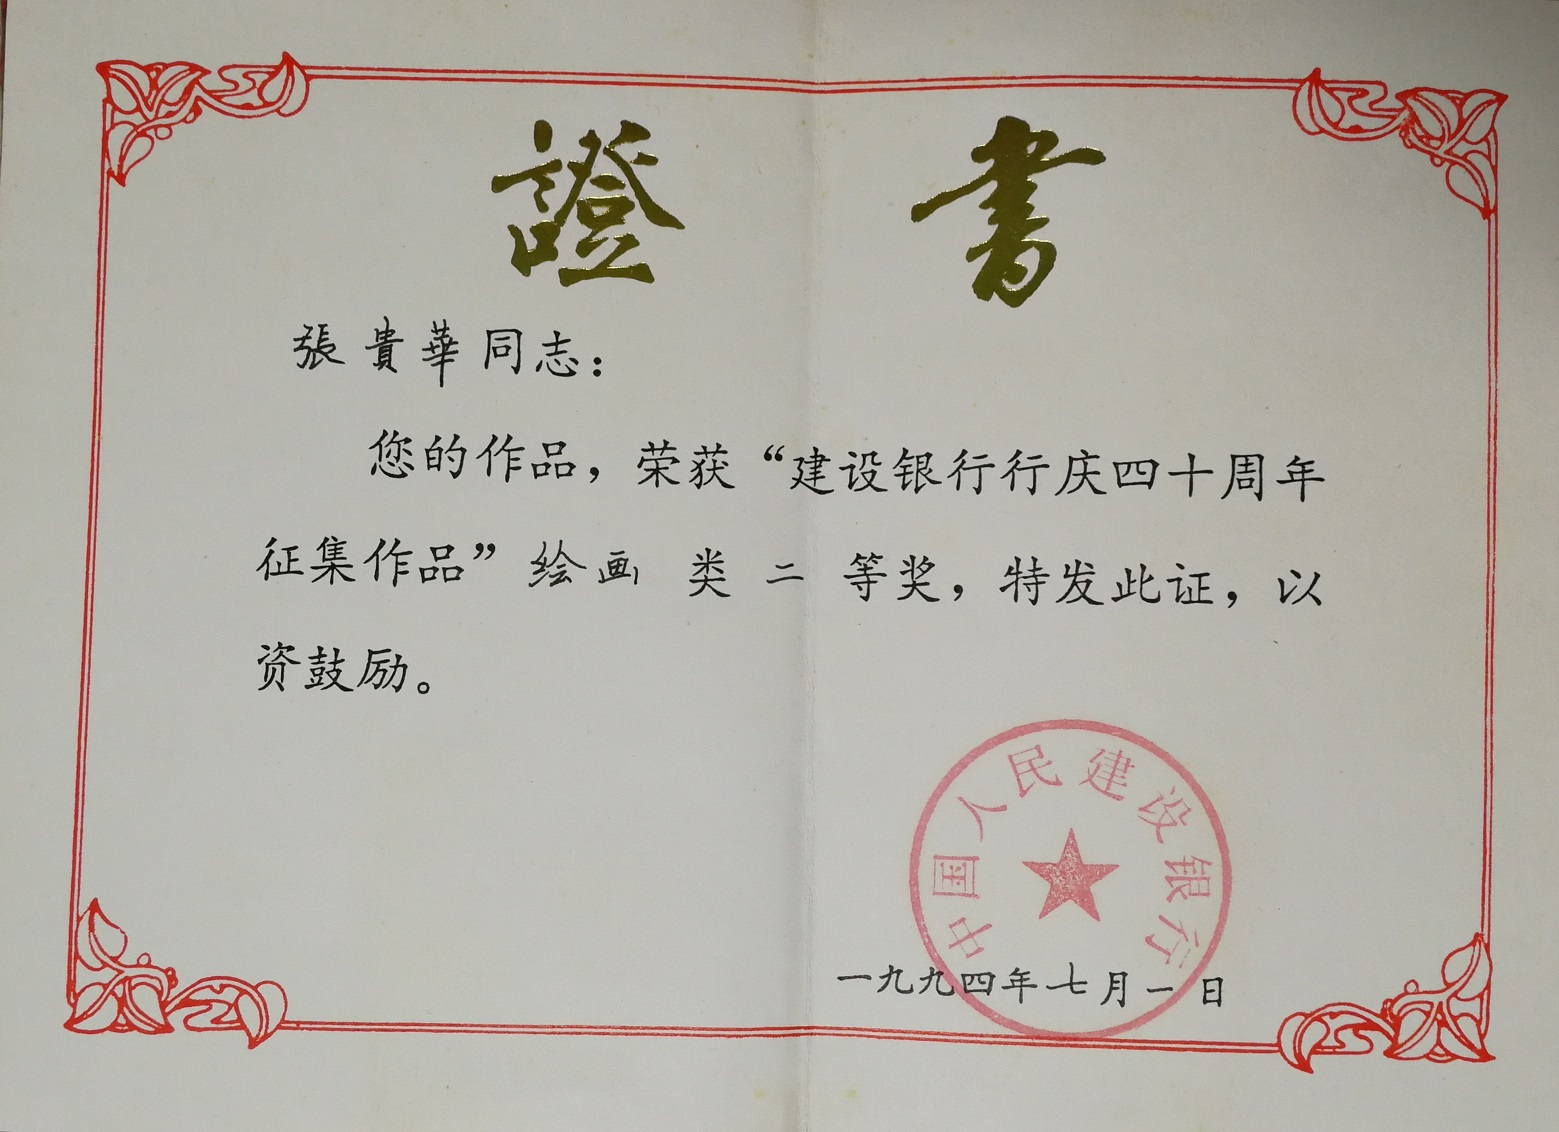 證書
張貴華同志：
您的作品，荣获“建设银行行庆四十周年
征集作品”绘画 类 二 等奖，特发此证，以
资鼓励。
中国人民建设银行
一九九四年七月一日